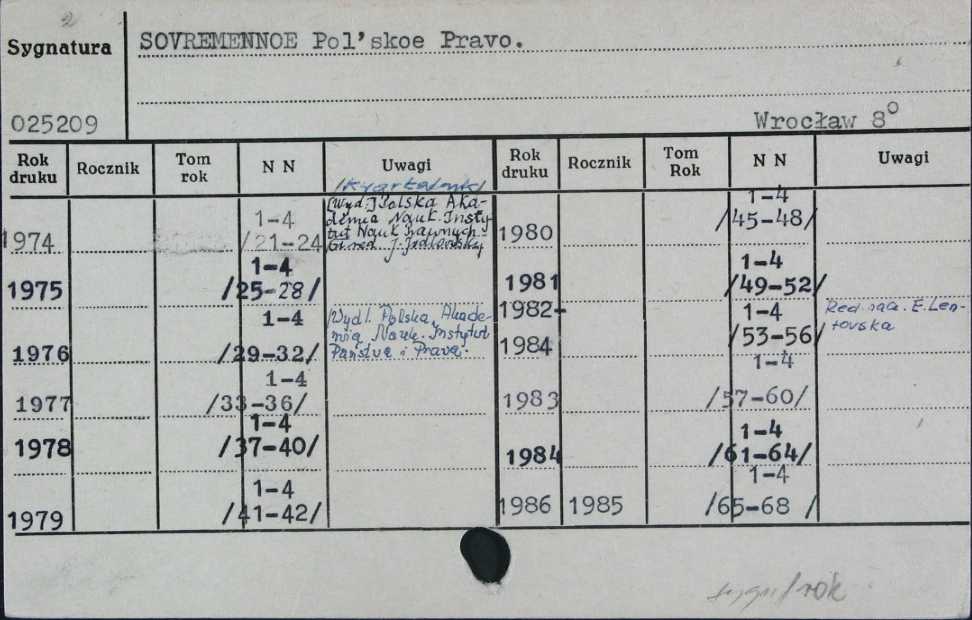 2
Sygnatura
SOVREMENNOE Pol'skoe Pravo.
025209
Wrocław 8°
Rok druku Rocznik Tom rok N N Uwagi Rok druku Rocznik Tom Rok N N Uwagi
/Kwartalnik/
1974 1-4 /21-24 [Wyd.] Polska Aka-
demia Nauk. Insty
tut Nauk Prawnych.
1975 1-4 /25-28/
1976 1-4 /29-32/ Wyd. Polska Akade-
mia Nauk. Instytut
Państwa i Prawa.
1977 1-4 /33-36/
1978 1-4 /37-40/
1979 1-4 /41-42/
1980 1-4 /45-48/
1981 1-4 /49-52/
1982-
1984 1-4 /53-56/ Red. nacz. E. Len-
tovska
1983 1-4 /57-60/
1984 1-4 /61-64/
1986 1985 1-4 /65-68 /
/rok